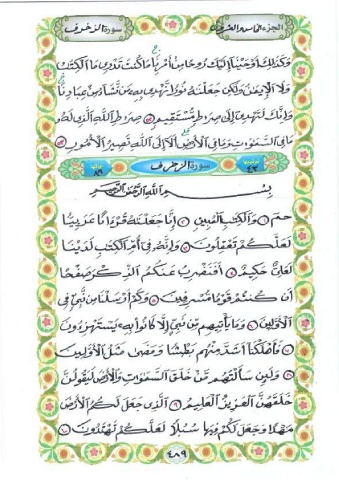 الجزء الخامس والعشرون
سورة الزخرف
وَكَذَٰلِكَ أَوْحَيْنَا إِلَيْكَ رُوحًا مِنْ أَمْرِنَا مَا كُنْتَ تَدْرِي مَا الْكِتَابُ
وَلَا الْإِيمَانُ وَلَٰكِنْ جَعَلْنَاهُ نُورًا نَهْدِي بِهِ مَنْ نَشَاءُ مِنْ عِبَادِنَا
وَإِنَّكَ لَتَهْدِي إِلَىٰ صِرَاطٍ مُسْتَقِيمٍ ٥٢ صِرَاطِ اللَّهِ الَّذِي لَهُ
مَا فِي السَّمَاوَاتِ وَمَا فِي الْأَرْضِ أَلَا إِلَى اللَّهِ تَصِيرُ الْأُمُورُ ٥٣
سورة الزخرف
بِسْمِ اللَّهِ الرَّحْمَٰنِ الرَّحِيمِ
حم ١ وَالْكِتَابِ الْمُبِينِ ٢ إِنَّا جَعَلْنَاهُ قُرْآنًا عَرَبِيًّا
لَعَلَّكُمْ تَعْقِلُونَ ٣ وَإِنَّهُ فِي أُمِّ الْكِتَابِ لَدَيْنَا
لَعَلِيٌّ حَكِيمٌ ٤ أَفَنَضْرِبُ عَنْكُمُ الذِّكْرَ صَفْحًا
أَنْ كُنْتُمْ قَوْمًا مُسْرِفِينَ ٥ وَكَمْ أَرْسَلْنَا مِنْ نَبِيٍّ فِي
الْأَوَّلِينَ ٦ وَمَا يَأْتِيهِمْ مِنْ نَبِيٍّ إِلَّا كَانُوا بِهِ يَسْتَهْزِئُونَ
٧ فَأَهْلَكْنَا أَشَدَّ مِنْهُمْ بَطْشًا وَمَضَىٰ مَثَلُ الْأَوَّلِينَ
٨ وَلَئِنْ سَأَلْتَهُمْ مَنْ خَلَقَ السَّمَاوَاتِ وَالْأَرْضَ لَيَقُولُنَّ
خَلَقَهُنَّ الْعَزِيزُ الْعَلِيمُ ٩ الَّذِي جَعَلَ لَكُمُ الْأَرْضَ
مَهْدًا وَجَعَلَ لَكُمْ فِيهَا سُبُلًا لَعَلَّكُمْ تَهْتَدُونَ ١٠
٤٨٩